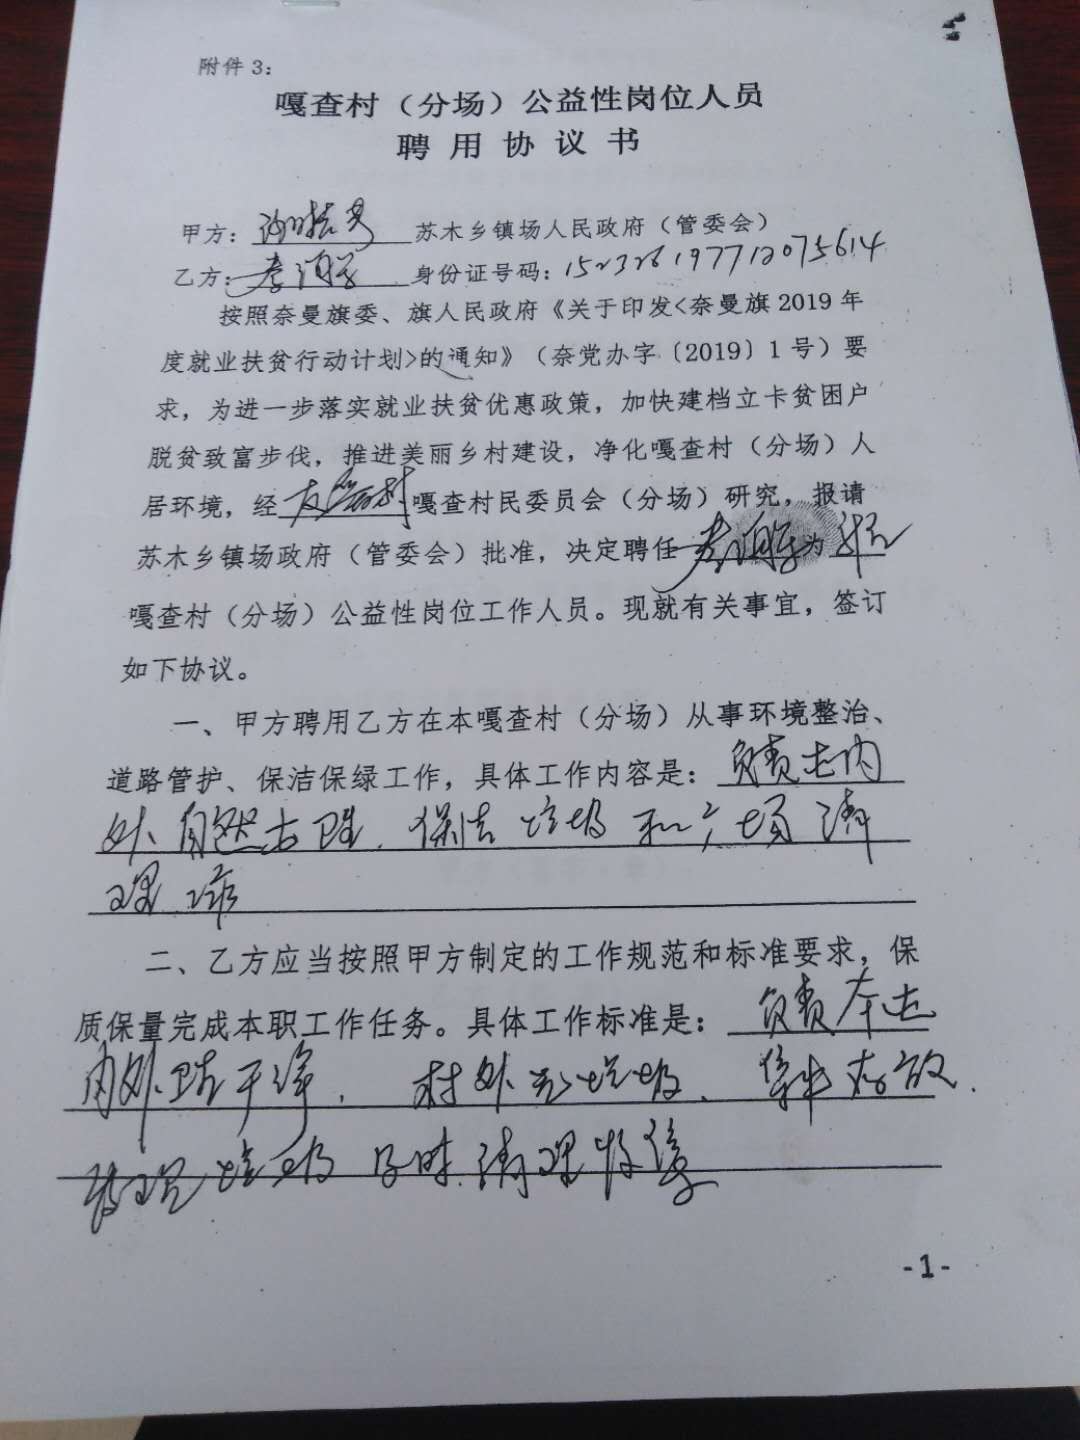 附件 3：
嘎查村（分场）公益性岗位人员
聘 用 协 议 书
甲方： 苏木乡镇场人民政府（管委会）
乙方： 身份证号码：152326197712075614
按照奈曼旗委、旗人民政府《关于印发<奈曼旗 2019 年
度就业扶贫行动计划>的通知》（奈党办字〔2019〕1 号）要
求，为进一步落实就业扶贫优惠政策，加快建档立卡贫困户
脱贫致富步伐，推进美丽乡村建设，净化嘎查村（分场）人
居环境，经 嘎查村民委员会（分场）研究，报请
苏木乡镇场政府（管委会）批准，决定聘任 为
嘎查村（分场）公益性岗位工作人员。现就有关事宜，签订
如下协议。
一、甲方聘用乙方在本嘎查村（分场）从事环境整治、
道路管护、保洁保绿工作，具体工作内容是：负责屯内
外自然屯卫生．保洁垃圾和 场清
理工作
二、乙方应当按照甲方制定的工作规范和标准要求，保
质保量完成本职工作任务。具体工作标准是：负责本屯
内外卫生干净． 村外无垃圾．集中存放．
垃圾及时清理
-1-